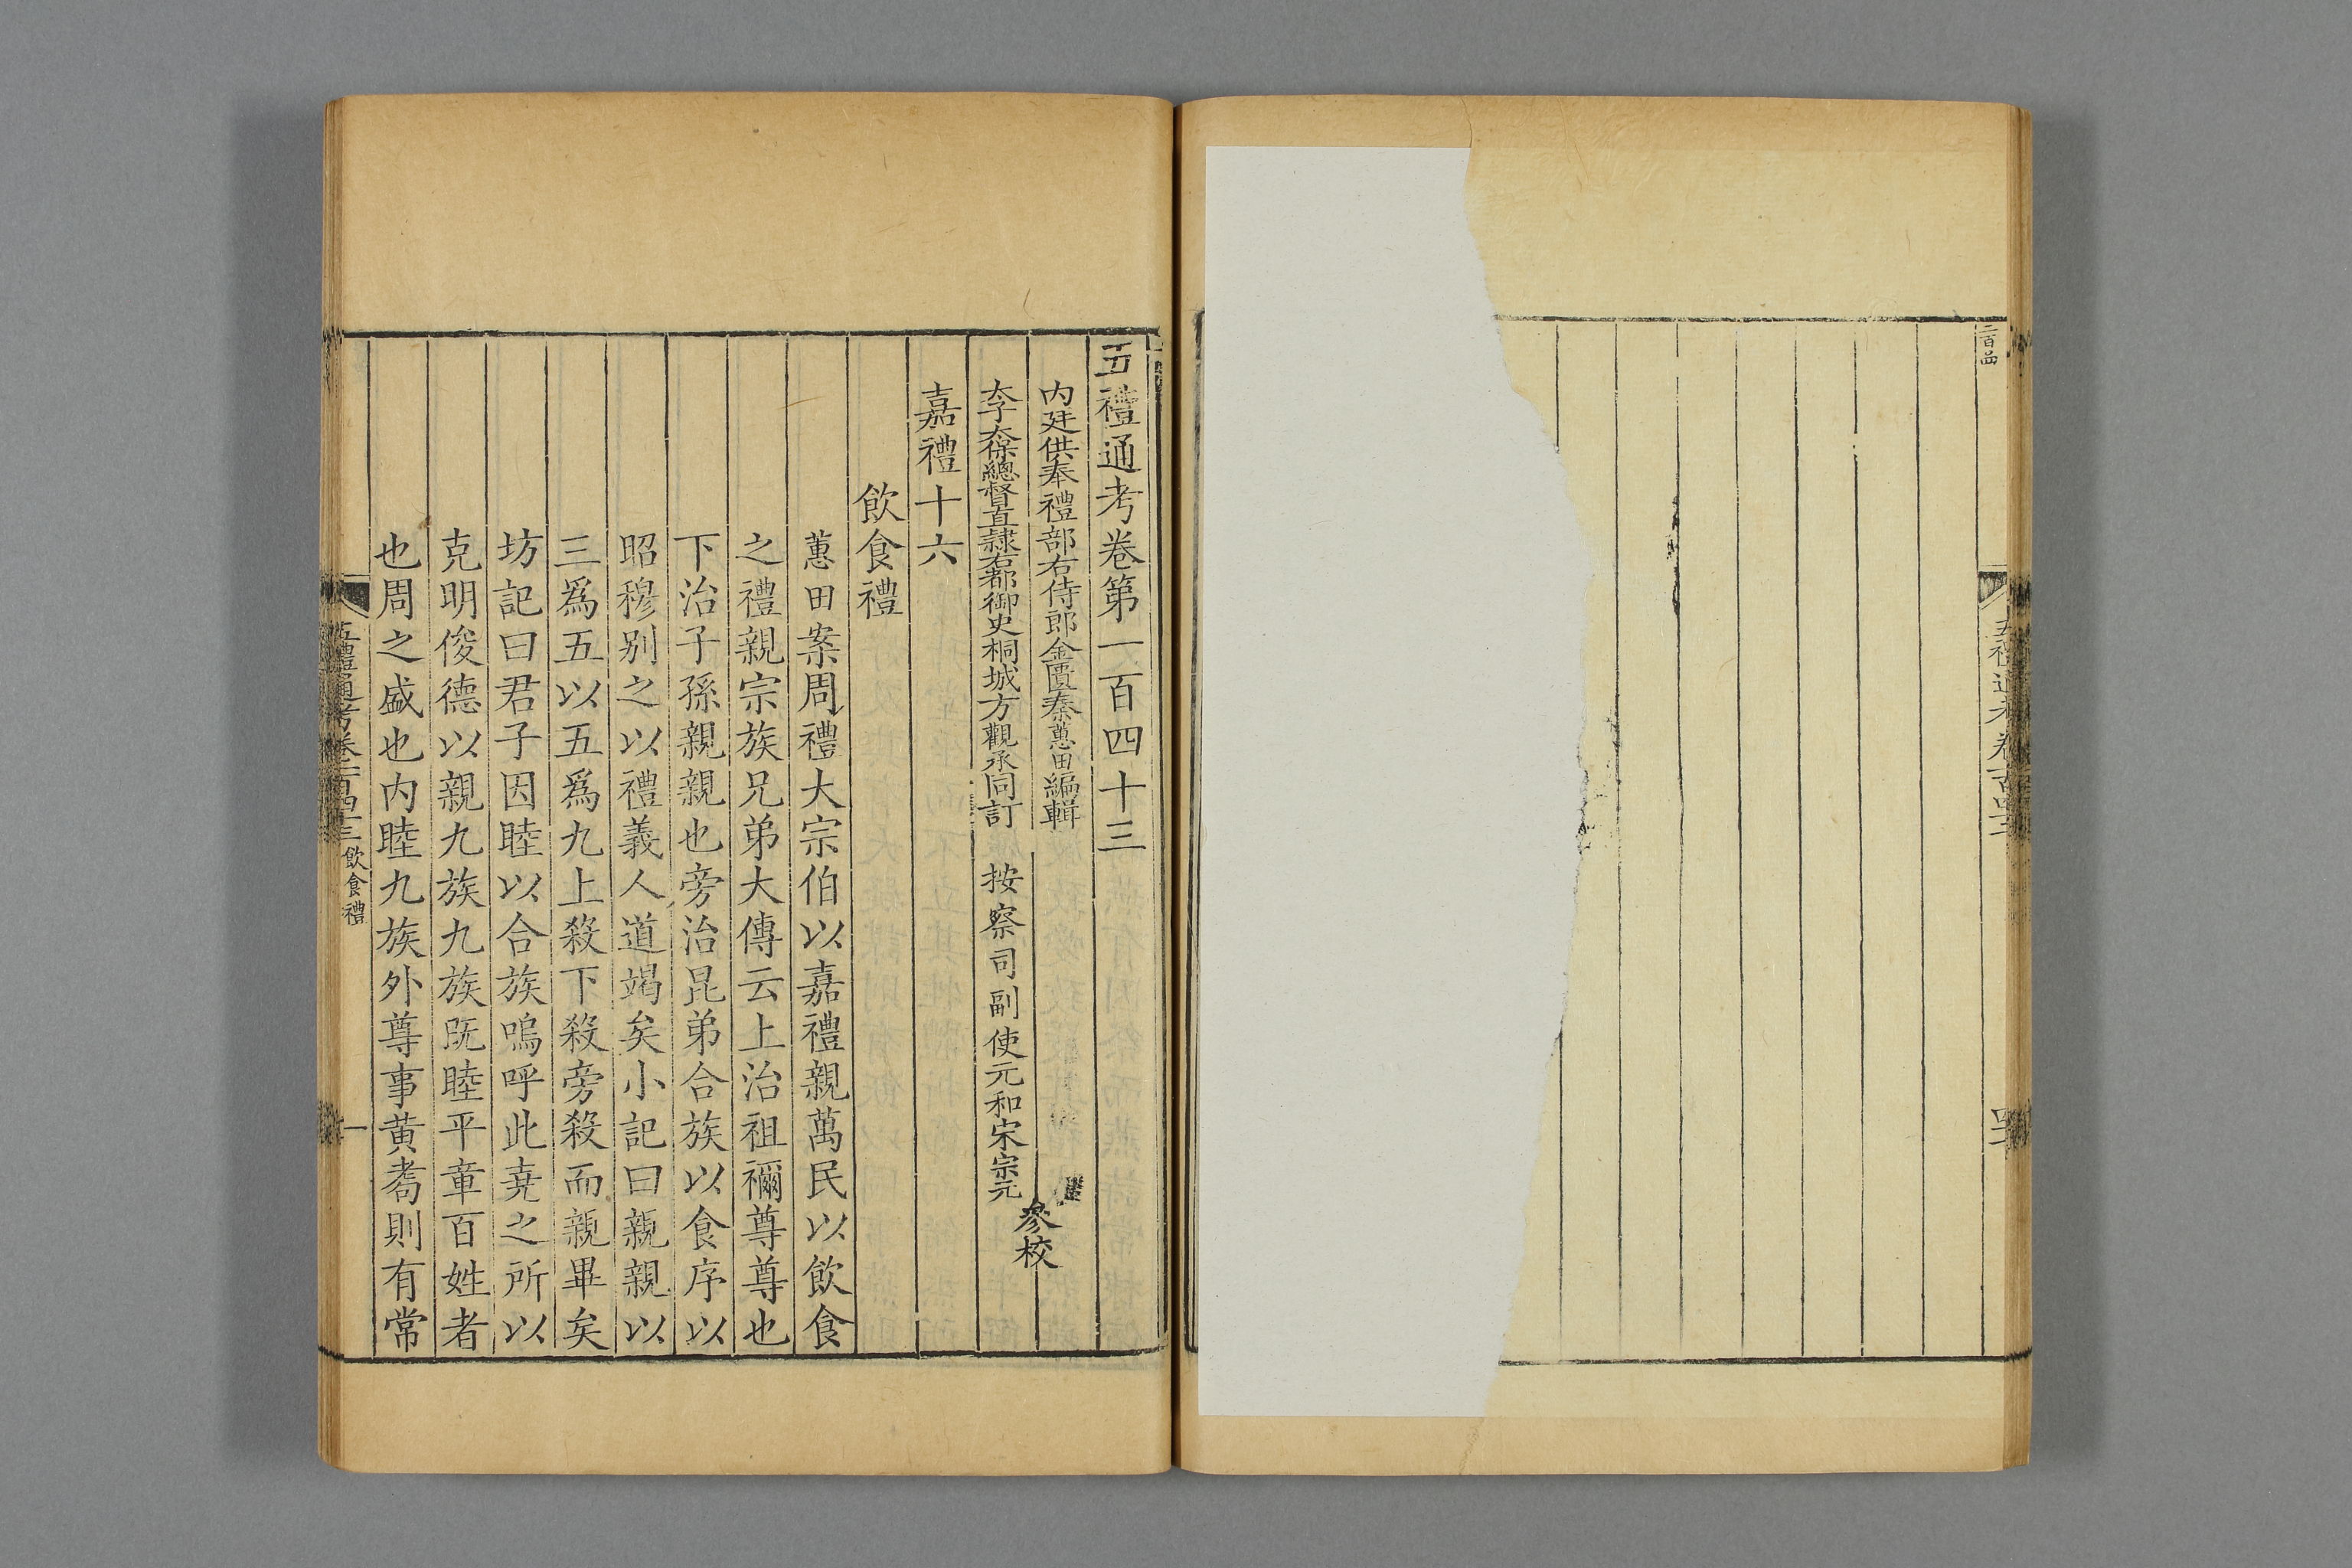 二百
五禮通考卷
五禮通考卷第一百四十三
內廷供奉禮部右侍郎金匱秦蕙田編輯
太子太保總督直隸右都御史桐城方觀承同訂
按察司副使元和宋宗元
參校
嘉禮十六
飲食禮
蕙田案周禮大宗伯以嘉禮親萬民以飲食
之禮親宗族兄弟大傳云上治祖禰尊尊也
下治子孫親親也旁治昆弟合族以食序以
昭穆別之以禮義人道竭矣小記曰親親以
三爲五以五爲九上殺下殺旁殺而親畢矣
坊記曰君子因睦以合族嗚呼此堯之所以
克明俊德以親九族九族既睦平章百姓者
也周之盛也內睦九族外尊事黃耇則有常
五禮通考卷一百四十三 飲食禮
一